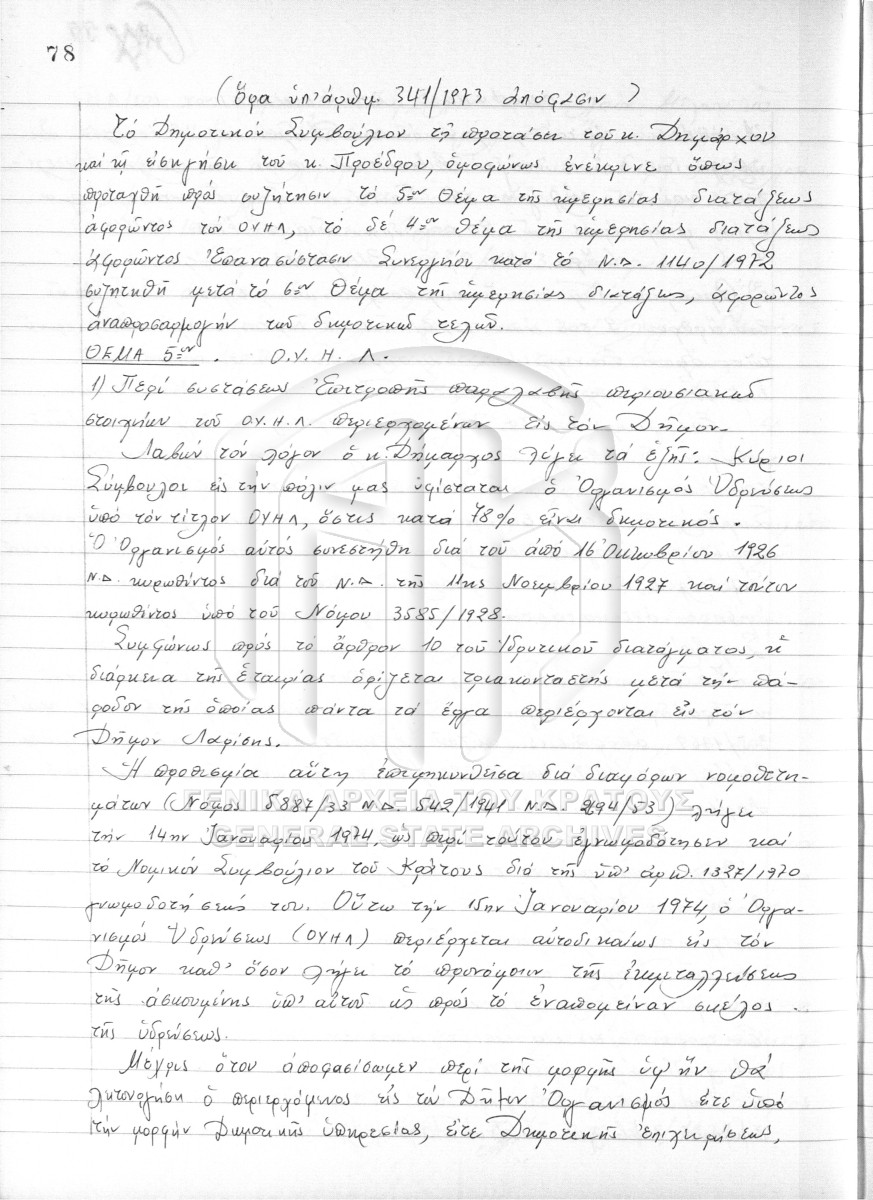 78
(Ὅρα ὑπ' ἀριθμ. 341/1973 ἀπόφασιν)
Τό Δημοτικόν Συμβούλιον τῇ προτάσει τοῦ κ. Δημάρχου
καί τῇ εἰσηγήσει τοῦ κ. Προέδρου, ὁμοφώνως ἐνέκρινε ὅπως
προταχθῆ πρός συζήτησιν τό 5ον θέμα τῆς ἡμερησίας διατάξεως
ἀφορῶντος τόν ΟΥΗΛ, τό δέ 4ον θέμα τῆς ἡμερησίας διατάξεως
ἀφορῶντος Ἐπανασύστασιν Συνεργείου κατά τό Ν.Δ. 1140/1972
συζητηθῆ μετά τό 5ον θέμα τῆς ἡμερησίας διατάξεως, ἀφορῶντος
ἀναπροσαρμογήν τῶν δημοτικῶν τελῶν.
ΘΕΜΑ 5ον. Ο.Υ.Η.Λ.
1) Περί συστάσεως Ἐπιτροπῆς παραλαβῆς περιουσιακῶν
στοιχείων τοῦ Ο.Υ.Η.Λ. περιερχομένων εἰς τόν Δῆμον.
Λαβών τόν λόγον ὁ κ. Δήμαρχος λέγει τά ἑξῆς: Κύριοι
Σύμβουλοι εἰς τήν πόλιν μας ὑφίσταται ὁ Ὀργανισμός Ὑδρεύσεως
ὑπό τόν τίτλον ΟΥΗΛ, ὅστις κατά 78% εἶναι δημοτικός.
Ὁ Ὀργανισμός αὐτός συνεστήθη διά τοῦ ἀπό 16 Ὀκτωβρίου 1926
Ν.Δ. κυρωθέντος διά τοῦ Ν.Δ. τῆς 11ης Νοεμβρίου 1927 καί τούτου
κυρωθέντος ὑπό τοῦ Νόμου 3585/1928.
Συμφώνως πρός τό ἄρθρον 10 τοῦ Ἱδρυτικοῦ διατάγματος, ἡ
διάρκεια τῆς ἑταιρίας ὁρίζεται τριακονταετής μετά τήν πά-
ροδον τῆς ὁποίας πάντα τά ἔργα περιέρχονται εἰς τόν
Δῆμον Λαρίσης.
Ἡ προθεσμία αὕτη ἐπιμηκυνθεῖσα διά διαφόρων νομοθετη-
μάτων (Νόμος 5887/33 Ν.Δ. 542/1941 Ν.Δ. 2694/53) λήγει
τήν 14ην Ἰανουαρίου 1974, ὡς περί τούτου ἐγνωμοδότησεν καί
τό Νομικόν Συμβούλιον τοῦ Κράτους διά τῆς ὑπ' ἀριθ. 1327/1970
γνωμοδοτήσεώς του. Οὕτω τήν 15ην Ἰανουαρίου 1974, ὁ Ὀργα-
νισμός Ὑδρεύσεως (ΟΥΗΛ) περιέρχεται αὐτοδικαίως εἰς τόν
Δῆμον καθ' ὅσον λήγει τό προνόμιον τῆς ἐκμεταλλεύσεως
τῆς ἀσκουμένης ὑπ' αὐτοῦ ὡς πρός τό ἐναπομεῖναν σκέλος
τῆς ὑδρεύσεως.
Μέχρις ὅτου ἀποφασίσωμεν περί τῆς μορφῆς ὑφ' ἥν θά
λειτουργήση ὁ περιερχόμενος εἰς τόν Δῆμον Ὀργανισμός εἴτε ὑπό
τήν μορφήν Δημοτικῆς ὑπηρεσίας, εἴτε Δημοτικῆς ἐπιχειρήσεως,
ΓΕΝΙΚΑ ΑΡΧΕΙΑ ΤΟΥ ΚΡΑΤΟΥΣ
GENERAL STATE ARCHIVES